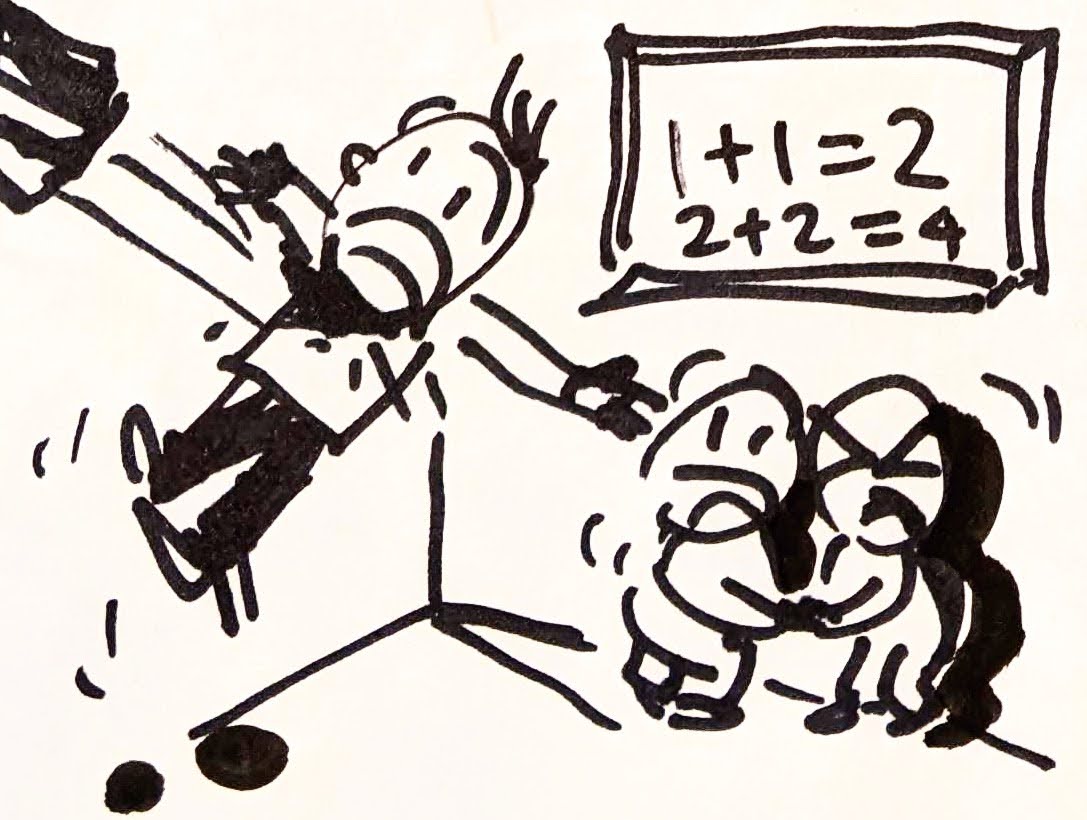 1+1=2
2+2=4